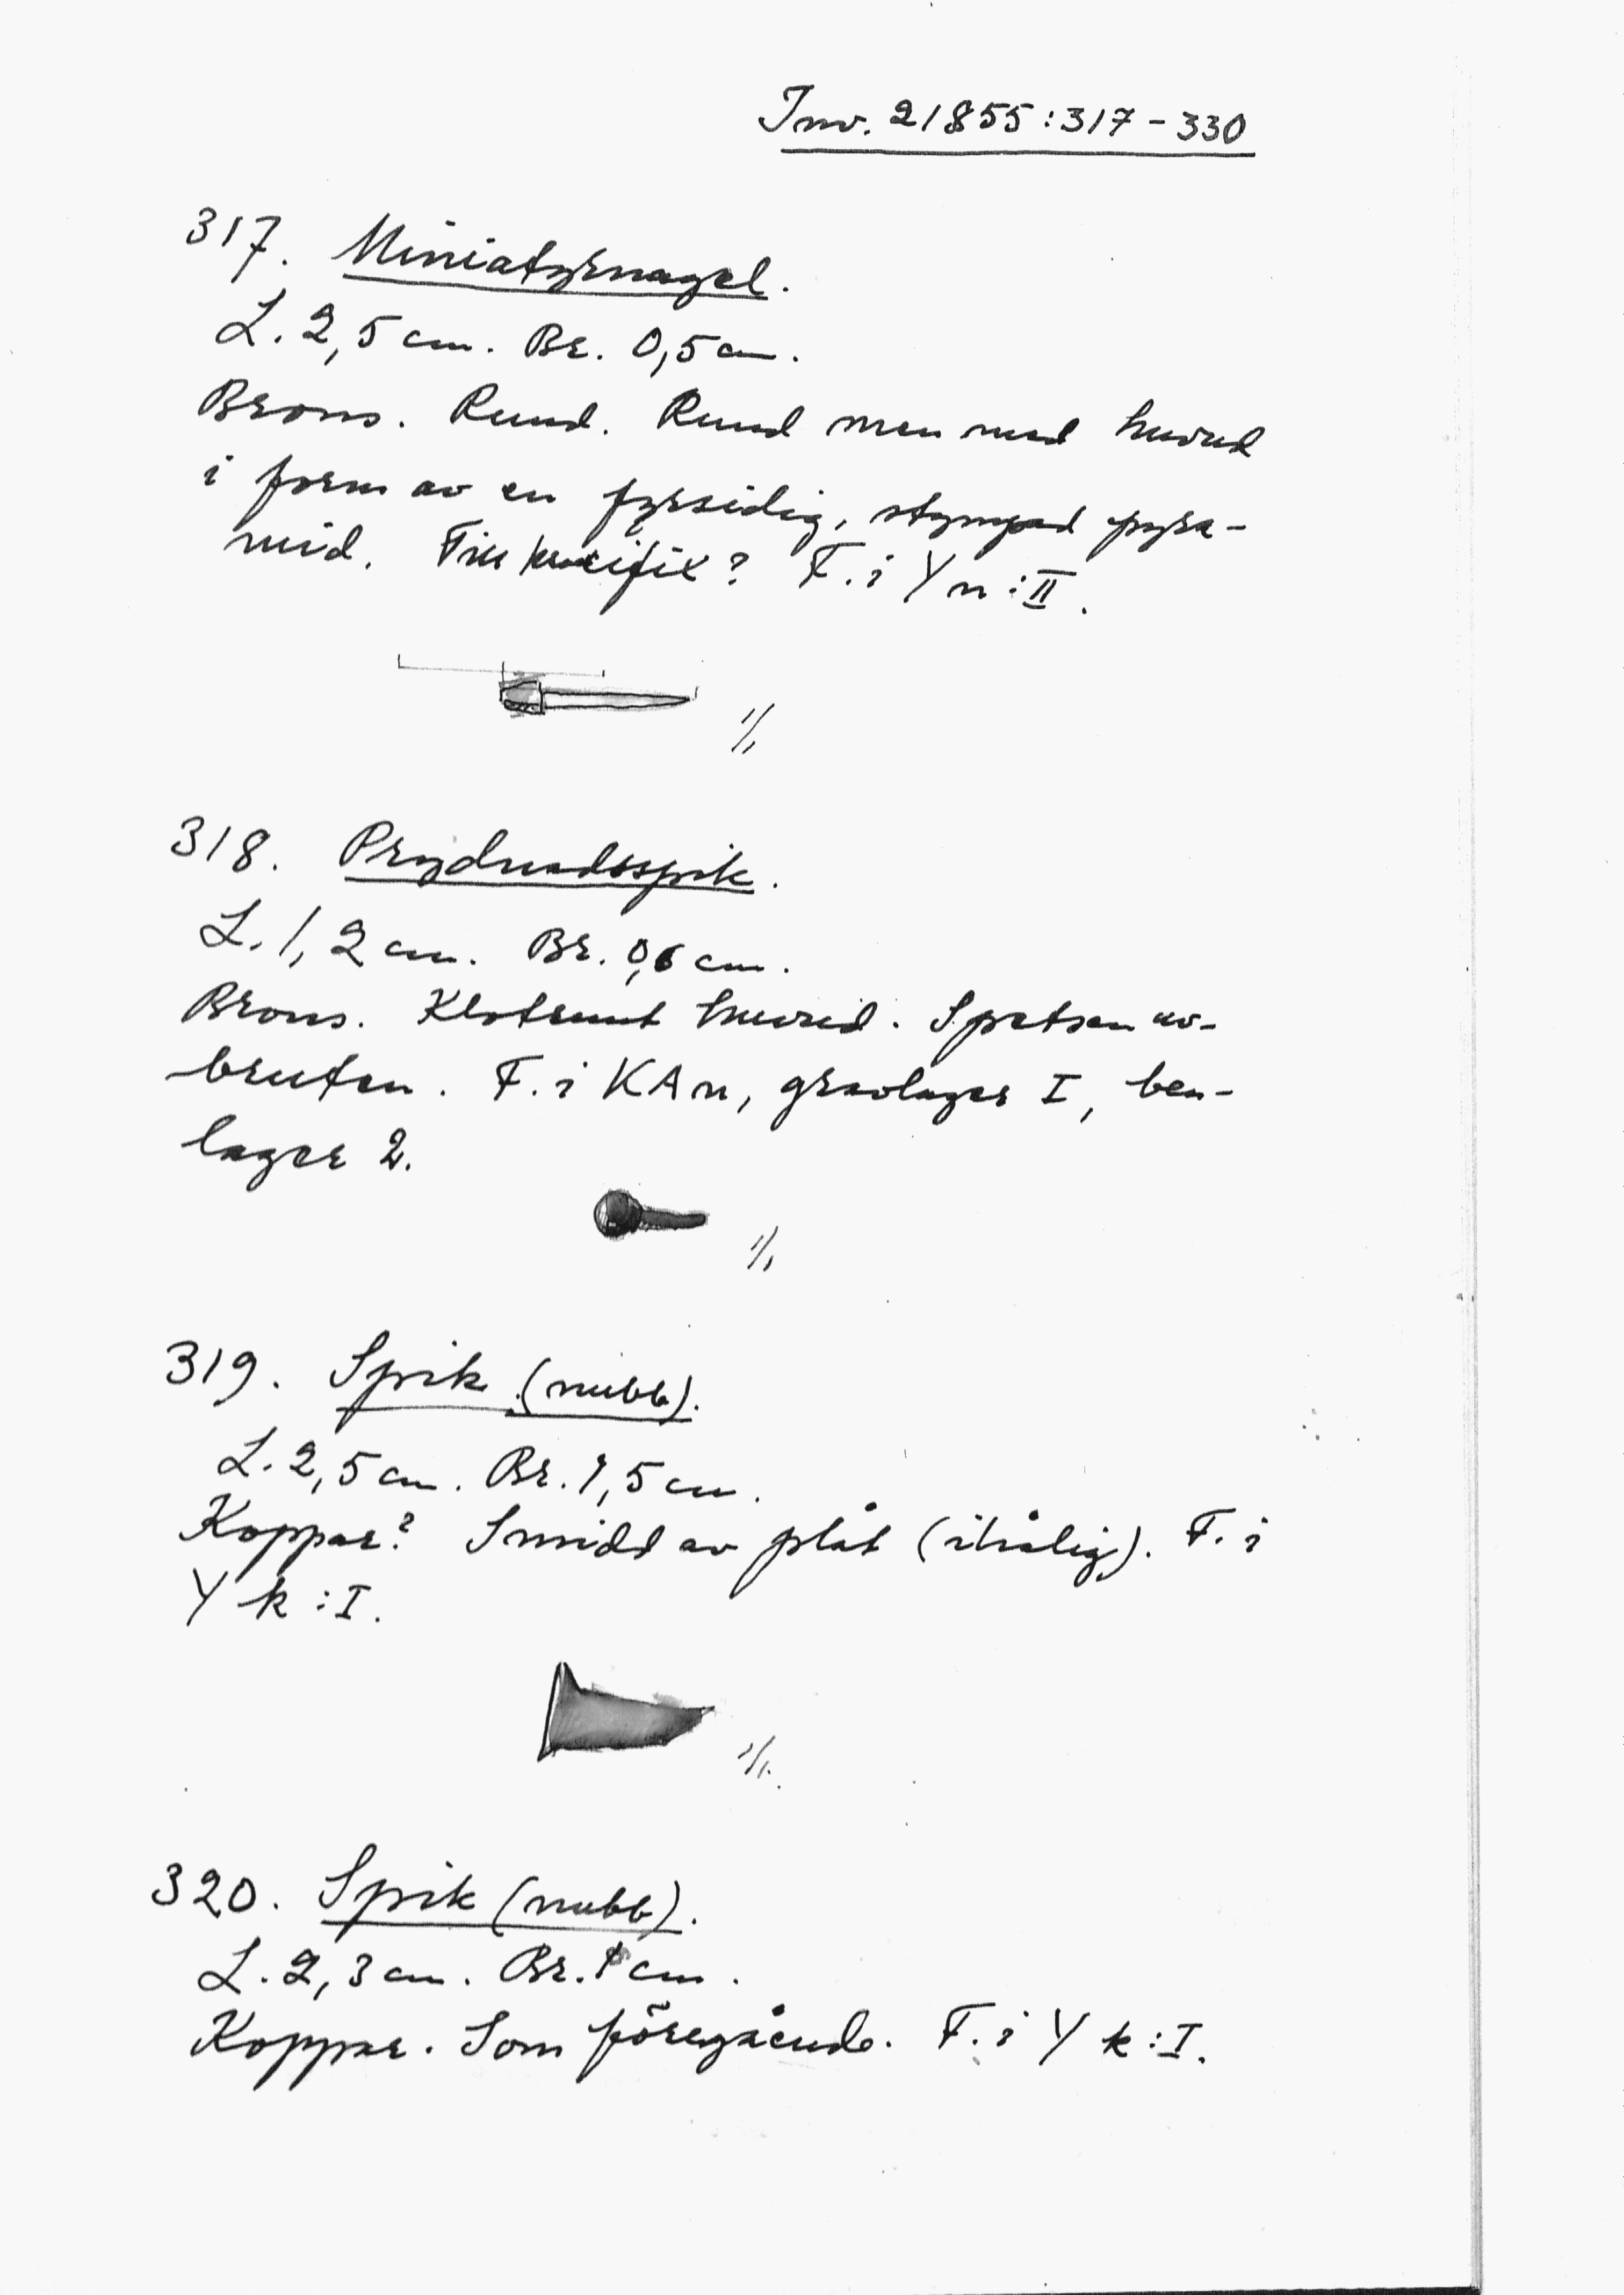 Inv. 21855:317-330
317. Miniatyrnagel.
L. 2,5 cm. Br. 0,5 cm.
Brons. Rund. Rund men med huvud
i form av en fyrsidig, stympad pyra-
mid. Till krucifix? F. i Y n:II.
1/1
318. Prydnadsspik.
L. 1,2 cm. Br. 0,6 cm.
Brons. Klotrunt huvud. Spetsen av-
bruten. F. i KA n, gravlager I, ben-
lager 2.
1/1
319. Spik (nubb).
L. 2,5 cm. Br. 1,5 cm.
Koppar? Smidd av plåt (ihålig). F. i
Y k:I.
1/1.
320. Spik (nubb).
L. 2,3 cm. Br. 1 cm.
Koppar. Som föregående. F. i Y k:I.